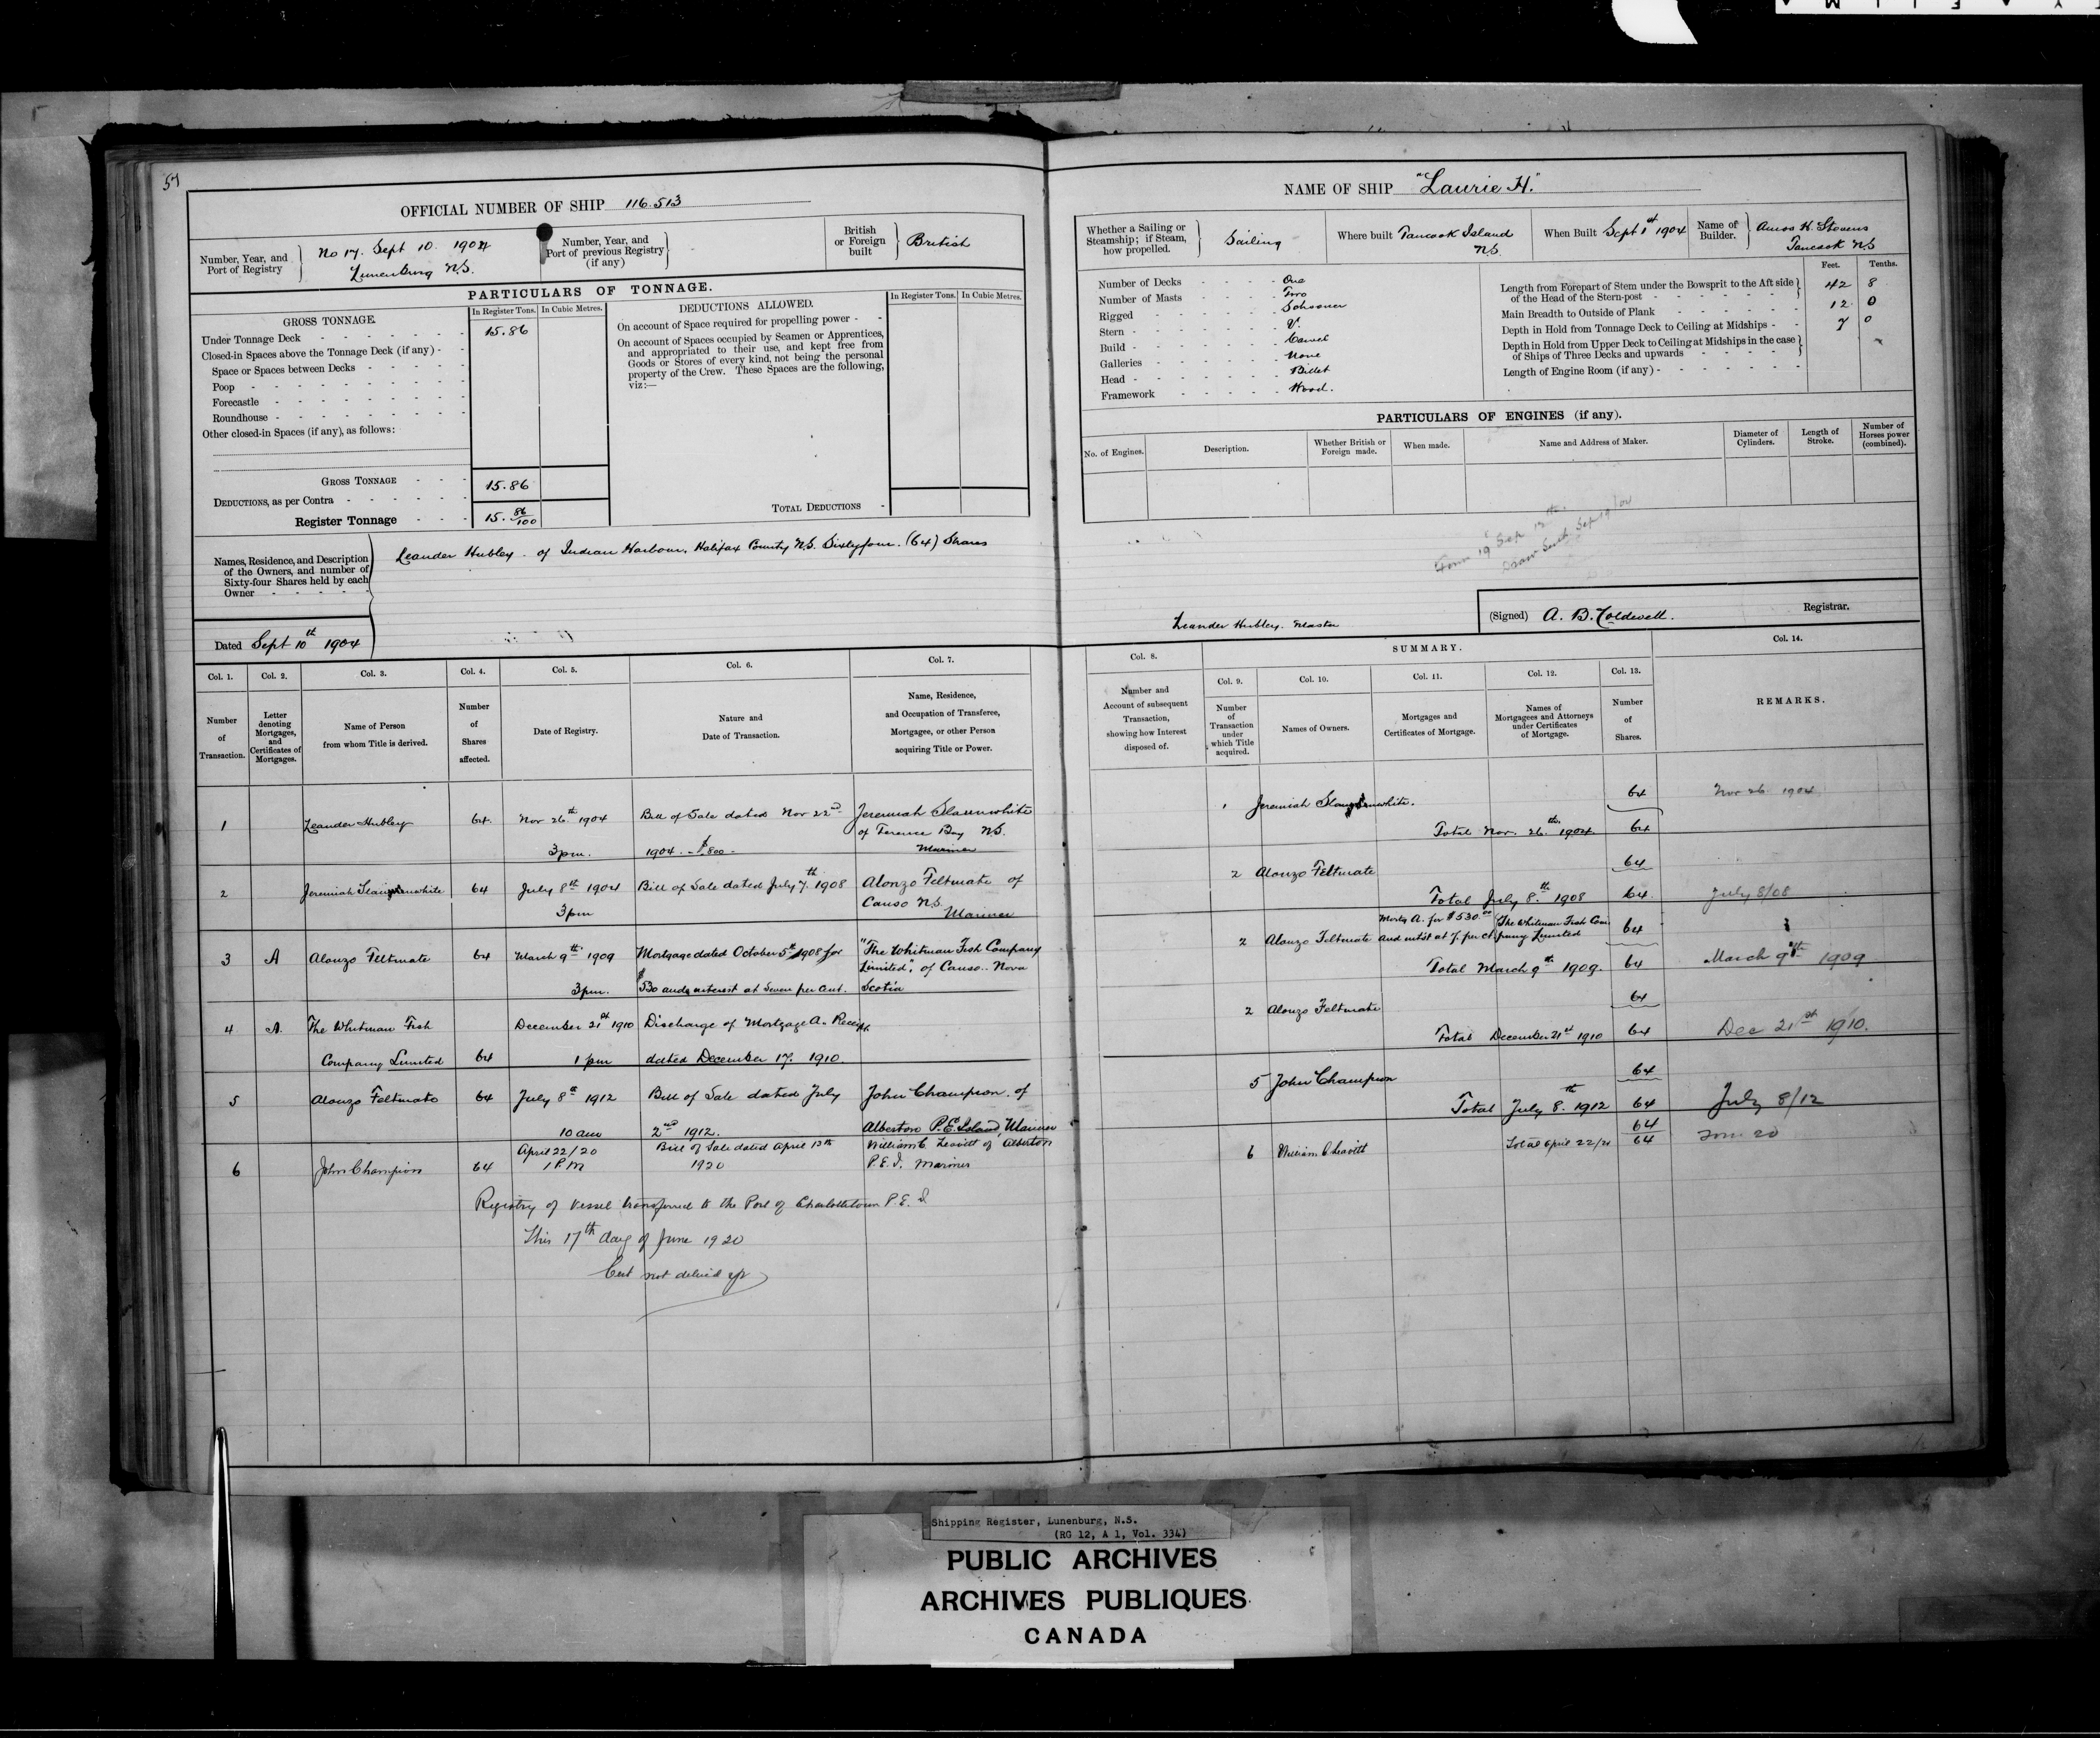 57
OFFICIAL NUMBER OF SHIP 116.513
Number, Year, and Port of Registry
No 17. Sept 10. 1904
Lunenburg N.S.
Number, Year, and Port of previous Registry (if any)
British or Foreign built
British
PARTICULARS OF TONNAGE.
GROSS TONNAGE.
In Register Tons.
In Cubic Metres.
Under Tonnage Deck 15.86
Closed-in Spaces above the Tonnage Deck (if any) -
Space or Spaces between Decks
Poop
Forecastle
Roundhouse
Other closed-in Spaces (if any), as follows:
GROSS TONNAGE 15.86
DEDUCTIONS, as per Contra
Register Tonnage 15. 86/100
DEDUCTIONS ALLOWED.
In Register Tons.
In Cubic Metres.
On account of Space required for propelling power -
On account of Spaces occupied by Seamen or Apprentices,
and appropriated to their use, and kept free from
Goods or Stores of every kind, not being the personal
property of the Crew. These Spaces are the following,
viz:—
TOTAL DEDUCTIONS
Names, Residence, and Description
of the Owners, and number of
Sixty-four Shares held by each
Owner
Leander Hubley - of Indian Harbour, Halifax County N.S. Sixtyfour. (64) Shares
Dated Sept 10th 1904
NAME OF SHIP "Laurie H."
Whether a Sailing or Steamship; if Steam, how propelled.
Sailing
Where built Tancook Island N.S.
When Built Sept 1st 1904
Name of Builder.
Amos H. Stevens
Tancook N.S
Number of Decks One
Number of Masts Two
Rigged Schooner
Stern V.
Build Carvel
Galleries None
Head Billet
Framework Wood.
Feet.
Tenths.
Length from Forepart of Stem under the Bowsprit to the Aft side of the Head of the Stern-post 42 8
Main Breadth to Outside of Plank 12 0
Depth in Hold from Tonnage Deck to Ceiling at Midships 7 0
Depth in Hold from Upper Deck to Ceiling at Midships in the case of Ships of Three Decks and upwards
Length of Engine Room (if any)
PARTICULARS OF ENGINES (if any).
No. of Engines.
Description.
Whether British or Foreign made.
When made.
Name and Address of Maker.
Diameter of Cylinders.
Length of Stroke.
Number of Horses power (combined).
Form 19 Sep 12th.
Leander Hubley. Master
(Signed) A. B. Coldwell. Registrar.
Col. 1. Col. 2. Col. 3. Col. 4. Col. 5. Col. 6. Col. 7.
Number of Transaction.
Letter denoting Mortgages, and Certificates of Mortgages.
Name of Person from whom Title is derived.
Number of Shares affected.
Date of Registry.
Nature and Date of Transaction.
Name, Residence, and Occupation of Transferee, Mortgagee, or other Person acquiring Title or Power.
1 Leander Hubley 64. Nov 26th 1904 Bill of Sale dated Nov 22nd Jeremiah Slaunwhite
of Terence Bay N.S.
3pm. 1904. - $800 - Mariner
2 Jeremiah Slaunwhite 64 July 8th 1904 Bill of Sale dated July 7th 1908 Alonzo Feltmate of
Canso N.S.
3pm Mariner
3 A Alonzo Feltmate 64 March 9th 1909 Mortgage dated October 5th 1908 for "The Whitman Fish Company
Limited", of Canso. Nova
3pm. $530 and interest at Seven per cent. Scotia
4 A. The Whitman Fish December 21st 1910 Discharge of Mortgage A. Receipt
Company Limited 64 1 pm dated December 17. 1910.
5 Alonzo Feltmate 64 July 8th 1912 Bill of Sale dated July John Champion of
10 am 2nd 1912. Alberton P.E. Island, Mariner
6 John Champion 64 April 22/20 Bill of Sale dated April 13th William C Leavitt of Alberton
1 P.M 1920 P.E.I. Mariner
Registry of vessel transferred to the Port of Charlottetown P.E.I
This 17th day of June 1920
Cert not delived up
Col. 8.
SUMMARY.
Col. 9. Col. 10. Col. 11. Col. 12. Col. 13.
Col. 14.
Number and Account of subsequent Transaction, showing how Interest disposed of.
Number of Transaction under which Title acquired.
Names of Owners.
Mortgages and Certificates of Mortgage.
Names of Mortgagees and Attorneys under Certificates of Mortgage.
Number of Shares.
REMARKS.
1 Jeremiah Slaunwhite. 64 Nov 26 1904
Total Nov. 26th. 1904 64
2 Alonzo Feltmate 64
Total July 8th 1908 64 July 8/08
2 Alonzo Feltmate Mortg A. for $530.00 and int'st at 7. per ct The Whitman Fish Company Limited 64
Total March 9th 1909. 64 March 9th 1909
2 Alonzo Feltmate 64
Total December 21st 1910 64 Dec 21st 1910.
5 John Champion 64
Total July 8.th 1912 64 July 8/12
6 William C Leavitt 64
Total April 22/20 64
Shipping Register, Lunenburg, N.S.
(RG 12, A 1, Vol. 334)
PUBLIC ARCHIVES
ARCHIVES PUBLIQUES
CANADA